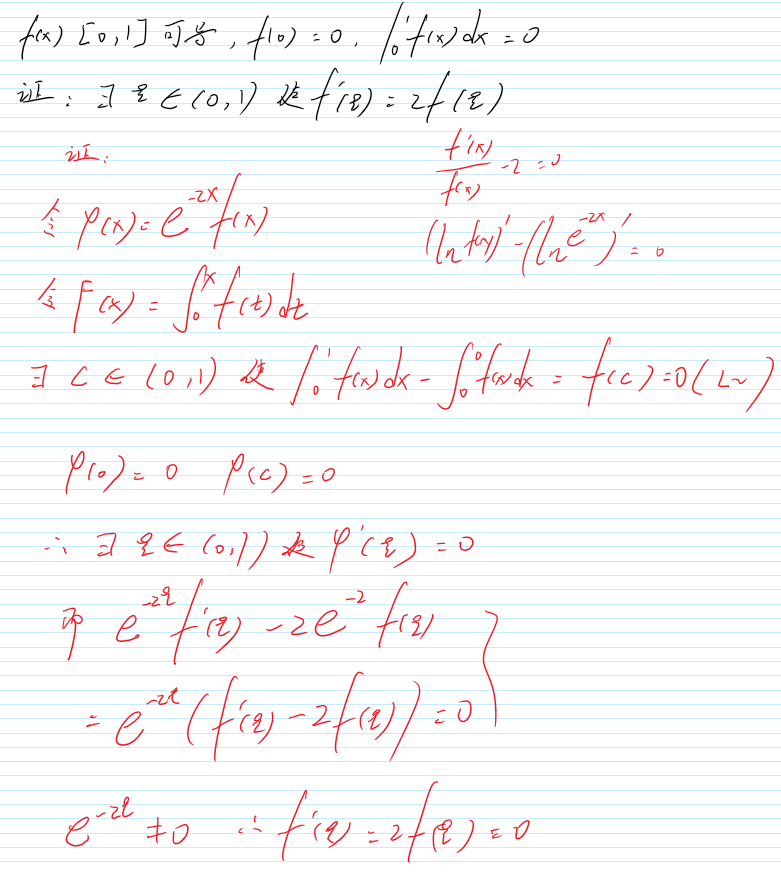 f(x) [0,1] 可导, f(0) = 0, ∫₀¹ f(x) dx = 0
证: ∃ ξ ∈ (0,1) 使 f'(ξ) = 2f(ξ)
证:
f'(x)/f(x) - 2 = 0
令 φ(x) = e^{-2x} f(x)
(ln f(x))' - (ln e^{-2x})' = 0
令 F(x) = ∫₀ˣ f(t) dt
∃ C ∈ (0,1) 使 ∫₀¹ f(x) dx - ∫₀⁰ f(x) dx = f(c) = 0 (L~)
φ(0) = 0 φ(c) = 0
∴ ∃ ξ ∈ (0,1) 使 φ'(ξ) = 0
即 e^{-2ξ} f'(ξ) - 2e^{-2} f(ξ)
= e^{-2ξ} (f'(ξ) - 2f(ξ)) = 0
e^{-2ξ} ≠ 0 ∴ f'(ξ) = 2f(ξ) = 0